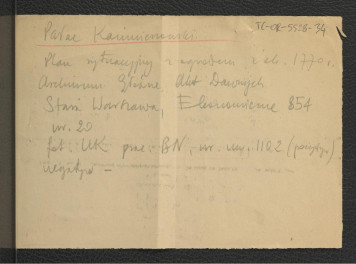 IC-OK-5556-34
Pałac Kazimierowski
Plan sytuacyjny z ogrodem z ok. 1770 r.
Archiwum Główne Akt Dawnych
Stara Warszawa, Ekonomiczne 854
nr. 20
fot. UK prac. BN, nr. neg. 1102 (pozytyw)
negatyw –